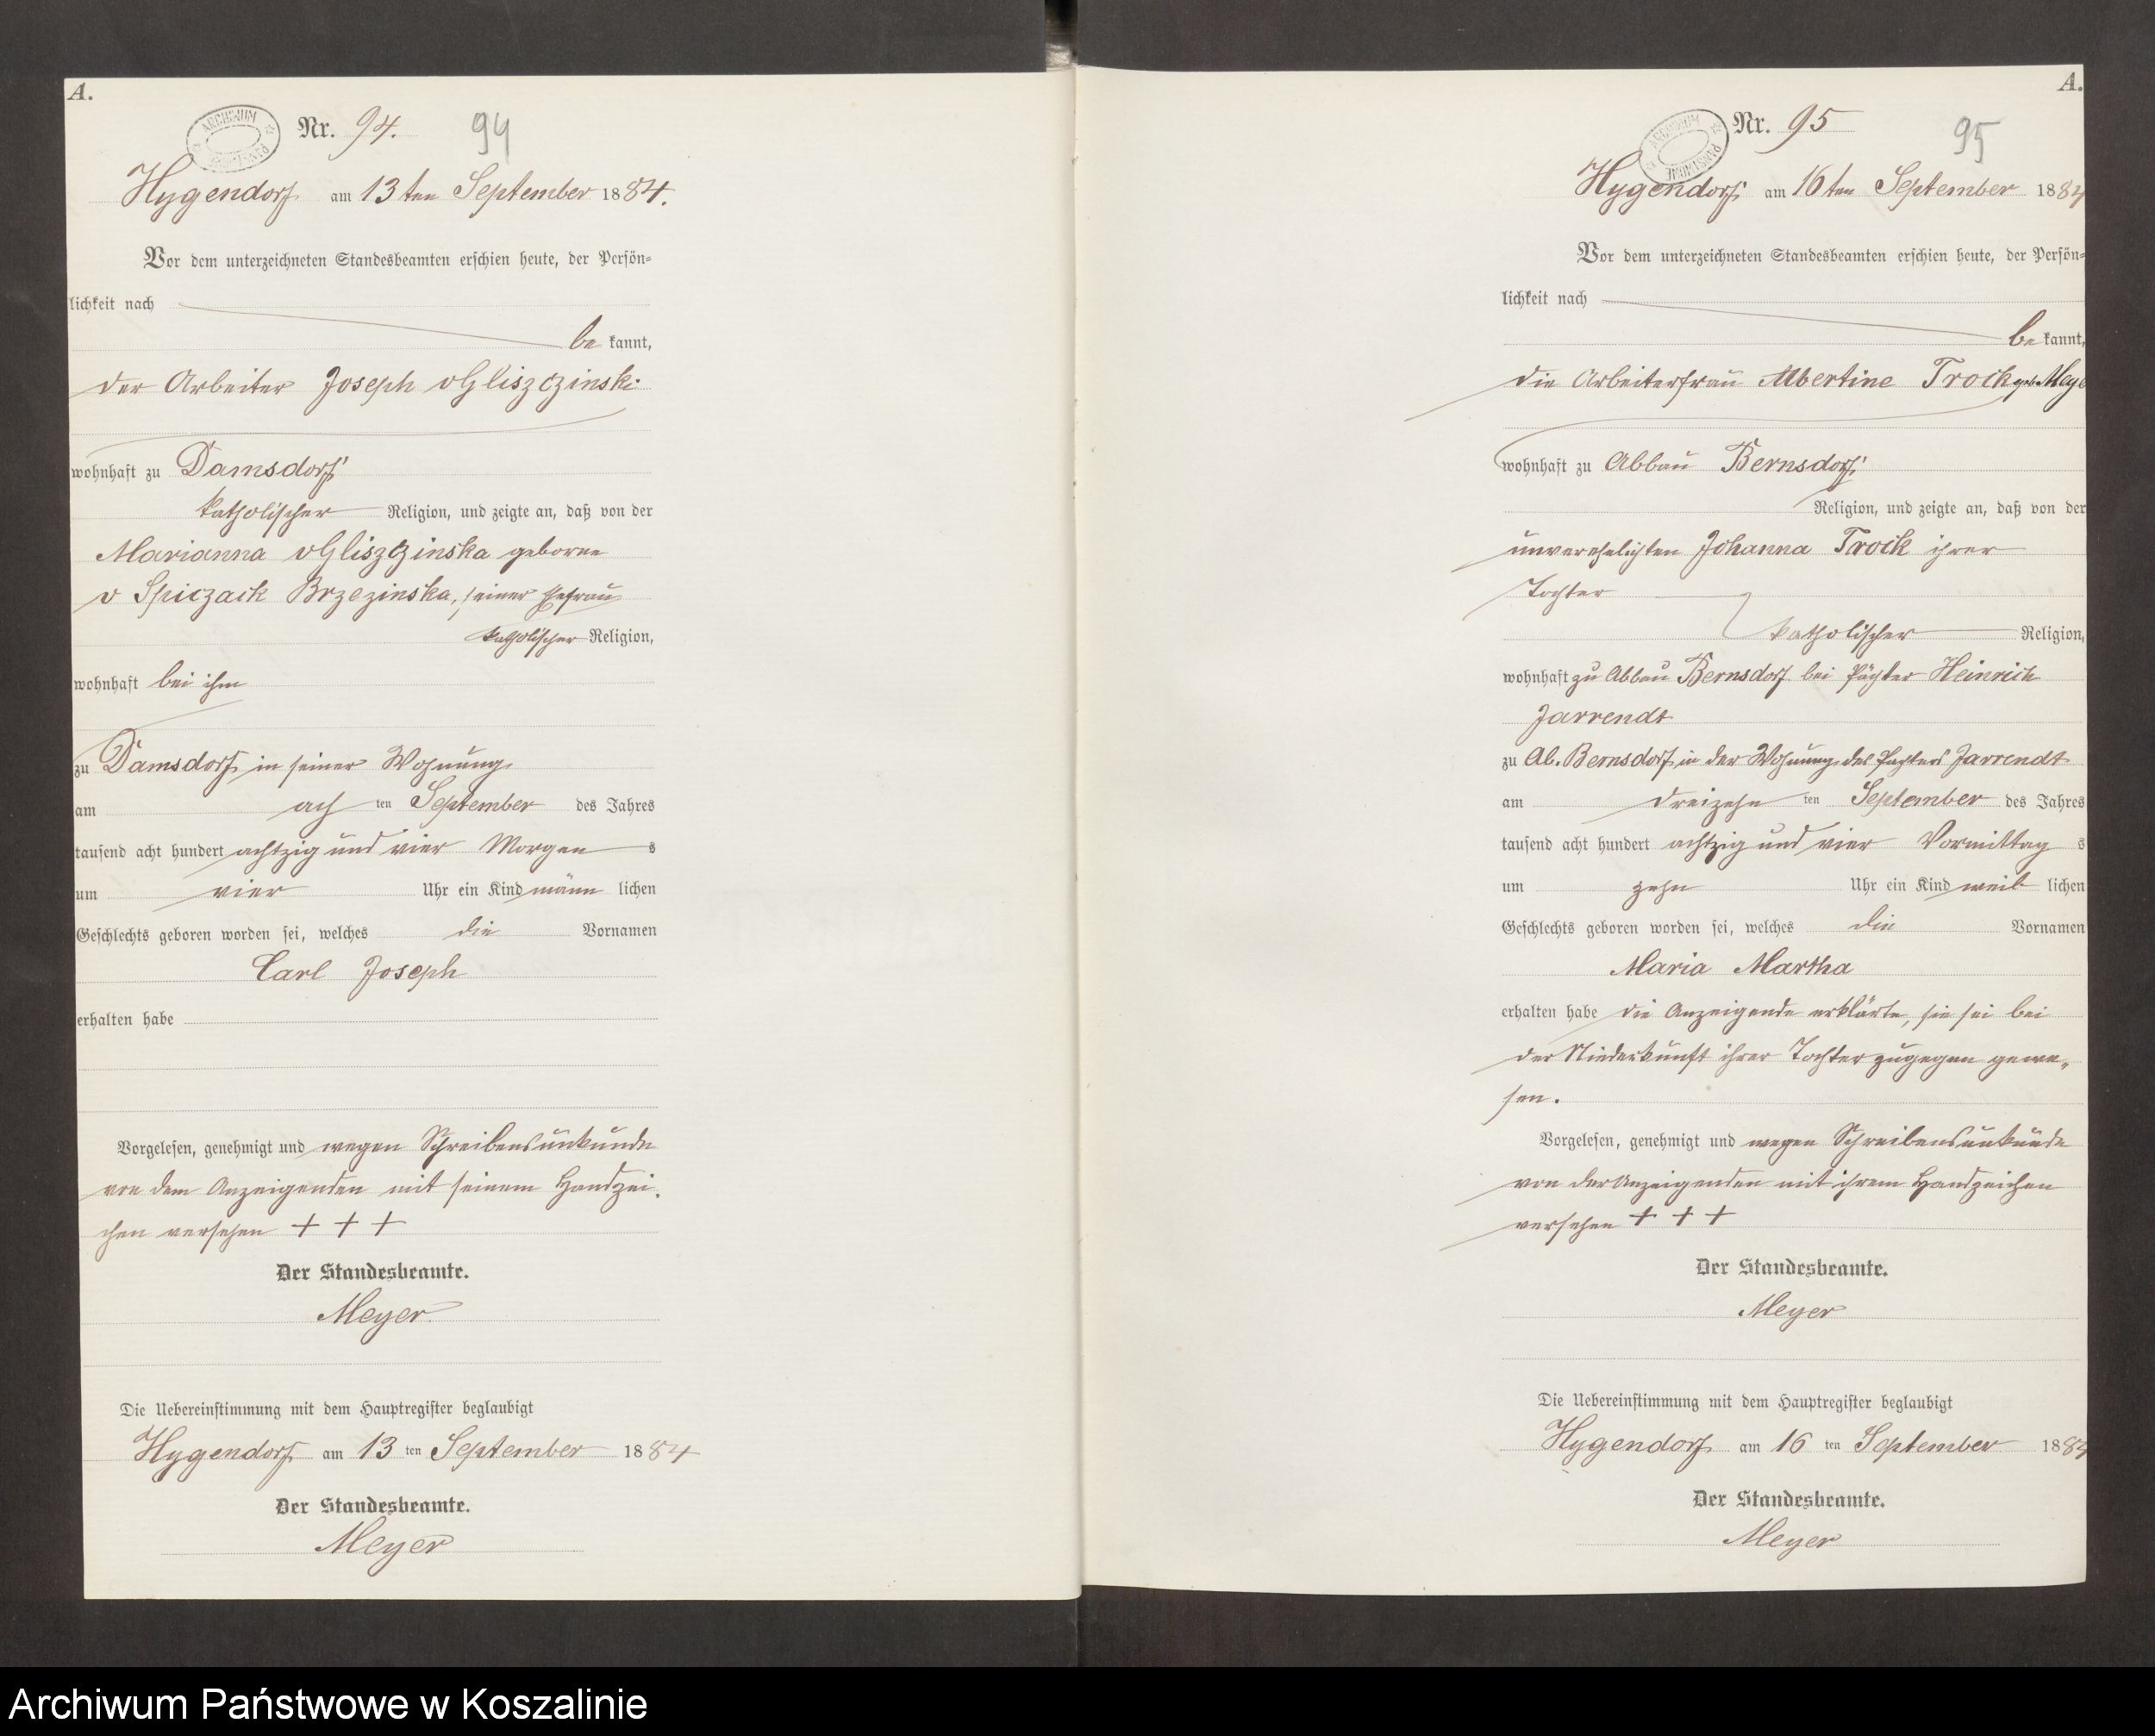 A.
ARCHIWUM
Nr. 94. 94
Hygendorf am 13ten September 1884.
Vor dem unterzeichneten Standesbeamten erschien heute, der Persön=
lichkeit nach
be kannt,
der Arbeiter Joseph v Gliszczinski
wohnhaft zu Damsdorf
katholischer Religion, und zeigte an, daß von der
Marianna v Gliszczinska geborne
v Spiczack Brzezinska, seiner Ehefrau
katholischer Religion,
wohnhaft bei ihm
zu Damsdorf in seiner Wohnung
am ach ten September des Jahres
tausend acht hundert achtzig und vier Morgen s
um vier Uhr ein Kind männ lichen
Geschlechts geboren worden sei, welches die Vornamen
Carl Joseph
erhalten habe
Vorgelesen, genehmigt und wegen Schreibensunkunde
von dem Anzeigenden mit seinem Handzei-
chen versehen + + +
Der Standesbeamte.
Meyer
Die Uebereinstimmung mit dem Hauptregister beglaubigt
Hygendorf am 13 ten September 1884
Der Standesbeamte.
Meyer
A.
ARCHIWUM PAŃSTWOWE
Nr. 95 95
Hygendorf am 16ten September 1884
Vor dem unterzeichneten Standesbeamten erschien heute, der Persön=
lichkeit nach
be kannt,
die Arbeiterfrau Albertine Trock geb. Meye
wohnhaft zu Abbau Bernsdorf
Religion, und zeigte an, daß von der
unverehelichten Johanna Trock ihrer
Tochter
katholischer Religion,
wohnhaft zu Abbau Bernsdorf bei Pächter Heinrich
Jarrendt
zu Ab. Bernsdorf in der Wohnung des Pachters Jarrendt
am dreizehn ten September des Jahres
tausend acht hundert achtzig und vier Vormittag s
um zehn Uhr ein Kind weib lichen
Geschlechts geboren worden sei, welches die Vornamen
Maria Martha
erhalten habe die Anzeigende erklärte, sie sei bei
der Niederkunft ihrer Tochter zugegen gewe-
sen.
Vorgelesen, genehmigt und wegen Schreibensunkunde
von der Anzeigenden mit ihrem Handzeichen
versehen + + +
Der Standesbeamte.
Meyer
Die Uebereinstimmung mit dem Hauptregister beglaubigt
Hygendorf am 16 ten September 1884
Der Standesbeamte.
Meyer
Archiwum Państwowe w Koszalinie